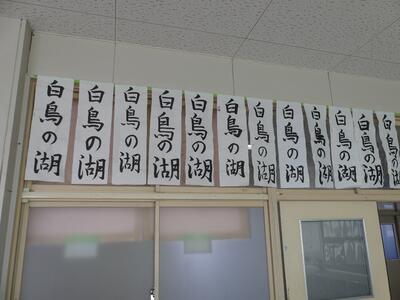 白鳥の湖
白鳥の湖
白鳥の湖
白鳥の湖
白鳥の湖
白鳥の湖
白鳥の湖
白鳥の湖
白鳥の湖
白鳥の湖
白鳥の湖
白鳥の湖